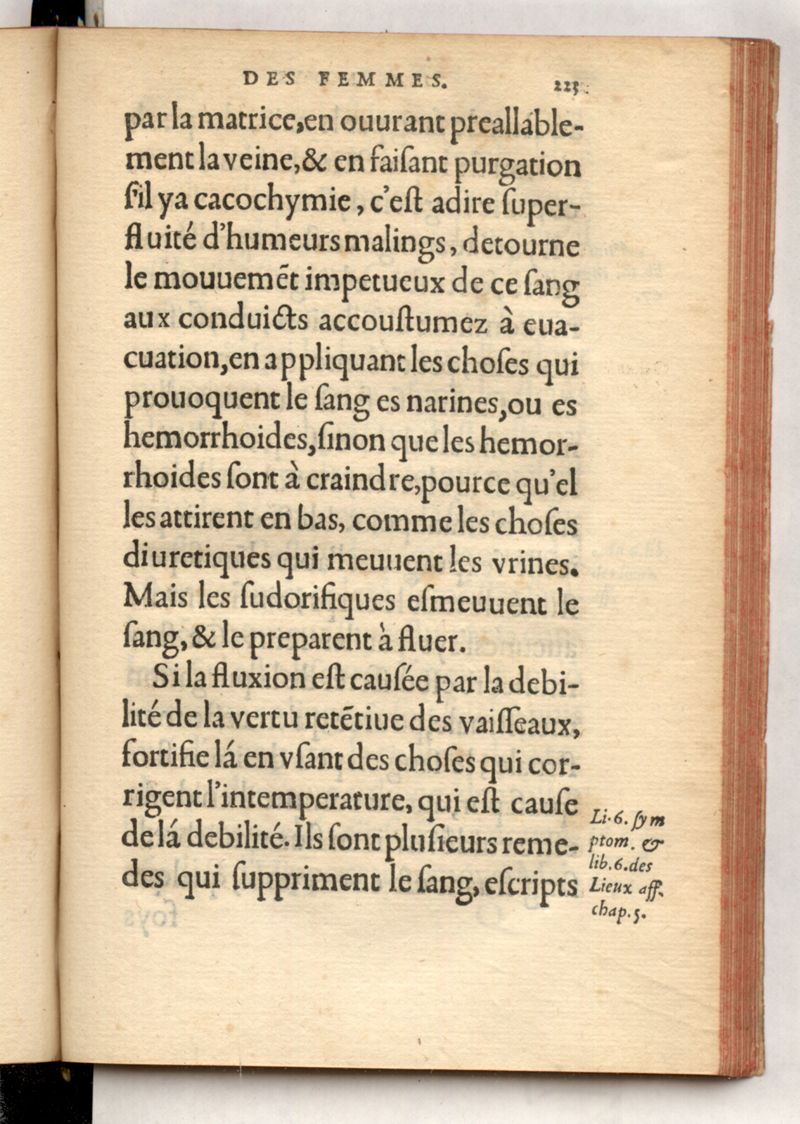 DES FEMMES. 223
par la matrice, en ouurant preallable-
ment la veine, & en faiſant purgation
ſ'il ya cacochymie, c'eſt adire ſuper-
fluité d'humeurs malings, detourne
le mouuemēt impetueux de ce ſang
aux conduicts accouſtumez à eua-
cuation, en appliquant les choſes qui
prouoquent le ſang es narines, ou es
hemorrhoides, ſinon que les hemor-
rhoides ſont à craindre, pource qu'el
les attirent en bas, comme les choſes
diuretiques qui meuuent les vrines.
Mais les ſudorifiques eſmeuuent le
ſang, & le preparent à fluer.
Si la fluxion eſt cauſée par la debi-
lité de la vertu retētiue des vaiſſeaux,
fortifie lá en vſant des choſes qui cor-
rigent l'intemperature, qui eſt cauſe
de lá debilité. Ils ſont pluſieurs reme-
des qui ſuppriment le ſang, eſcripts
Li. 6. ſym
ptom. &
lib. 6. des
Lieux aff.
chap. 5.